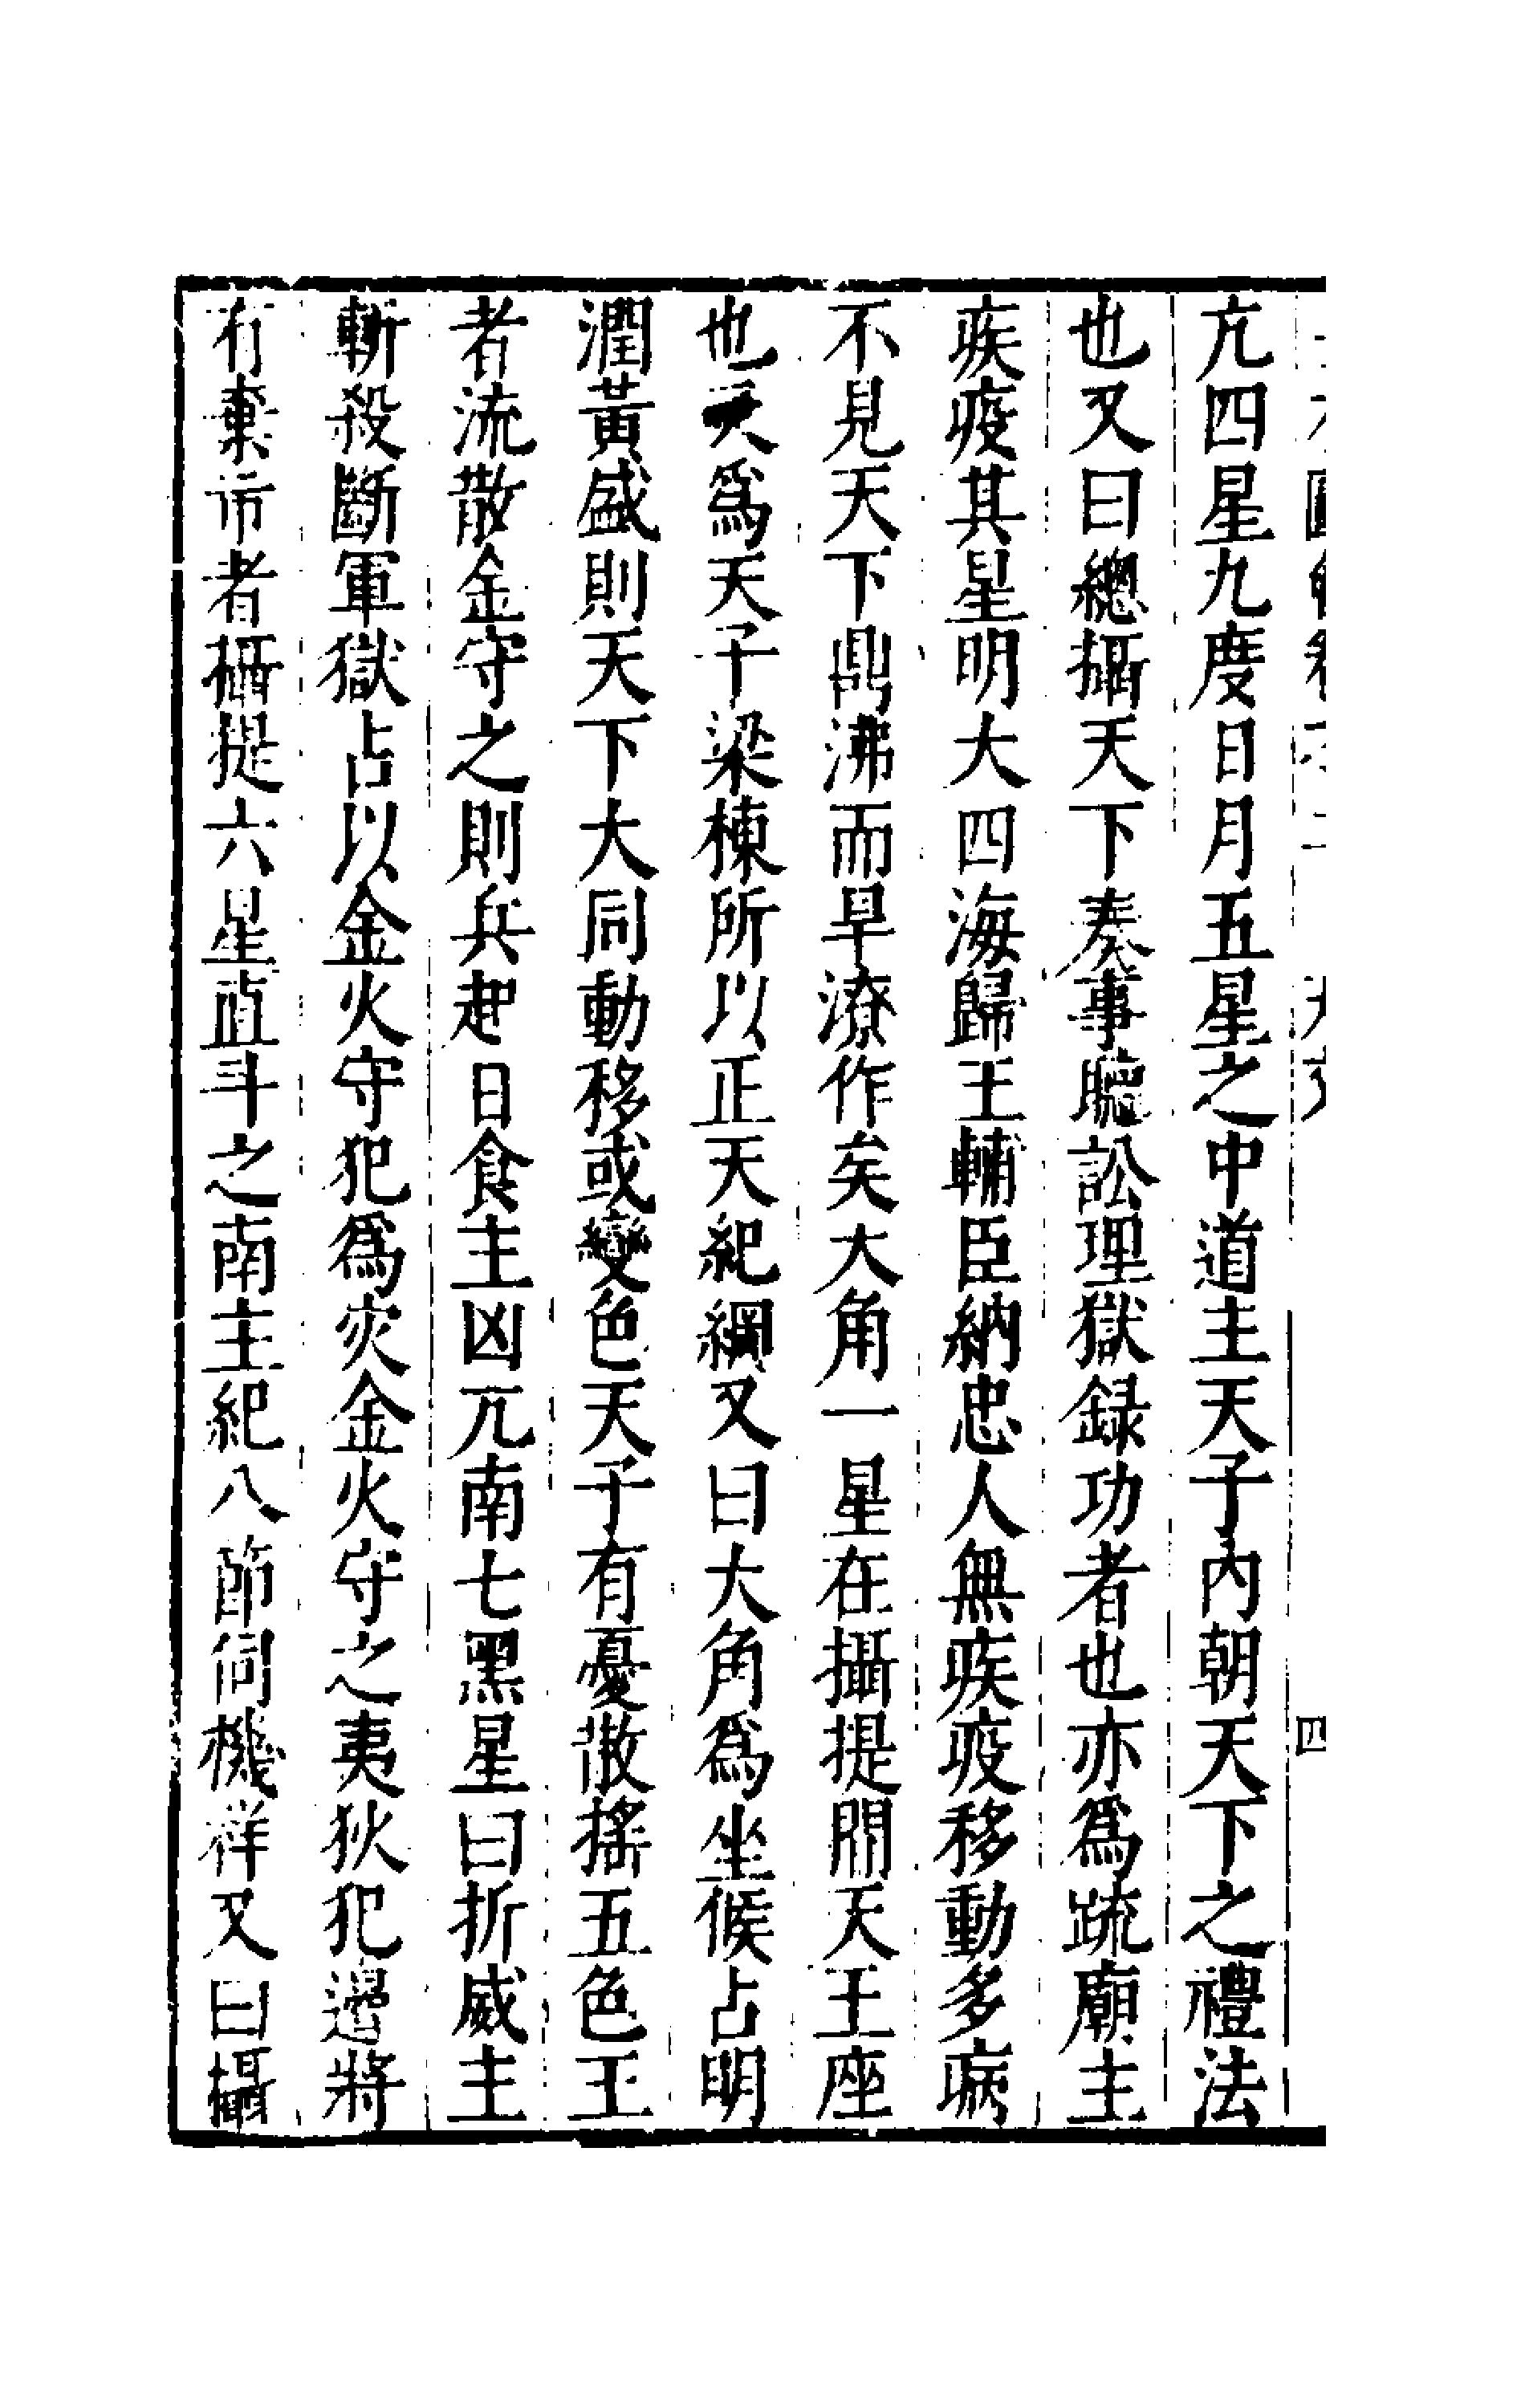 亢四星九度日月五星之中道主天子內朝天下之禮法
也又曰總攝天下奏事聽訟理獄録功者也亦爲疏廟主
疾疫其星明大四海歸王輔臣納忠人無疾疫移動多病
不見天下鼎沸而旱潦作矣大角一星在攝提間天王座
也又爲天子梁棟所以正天紀綱又曰大角爲坐候占明
潤黃盛則天下大同動移或變色天子有憂散搖五色王
者流散金守之則兵起日食主凶亢南七黑星曰折威主
斬殺斷軍獄占以金火守犯爲灾金火守之夷狄犯邊將
有棄市者攝提六星直斗之南主紀八節伺機祥又曰攝
四